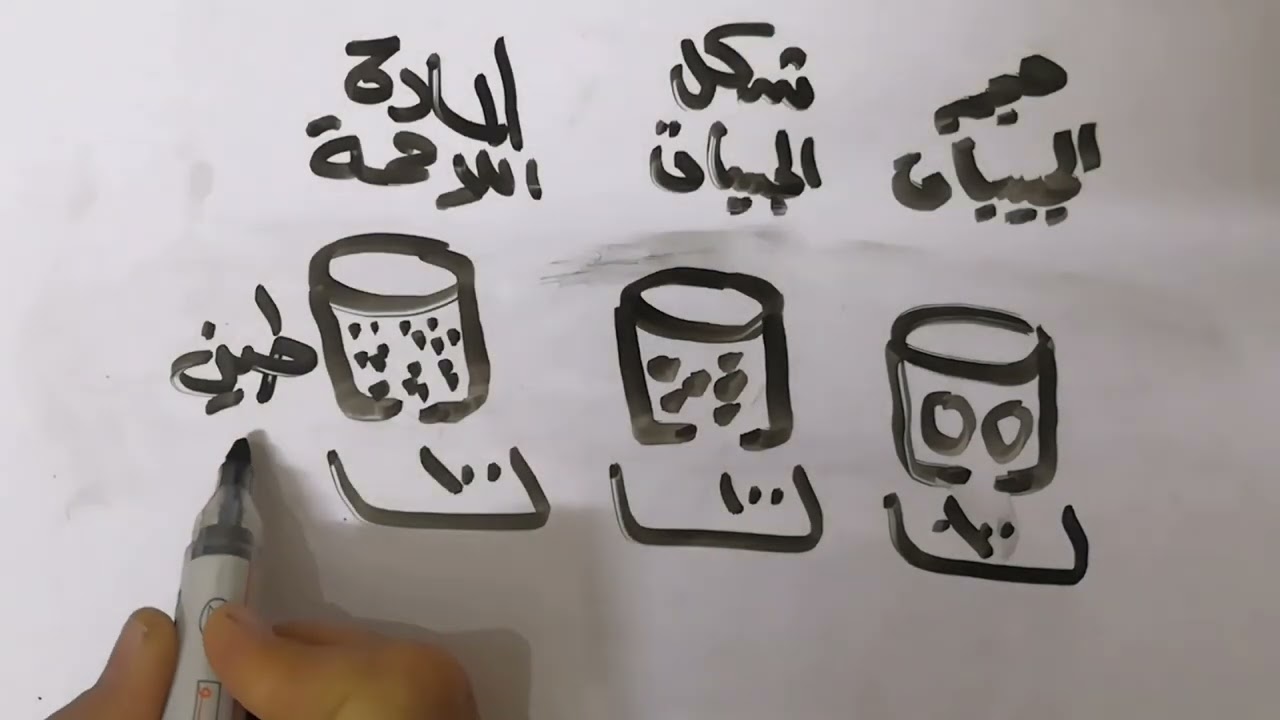 حجم
الحبيبات
شكل
الحبيبات
المادة
اللاحمة
طين
١٠٠
١٠٠
١٠٠